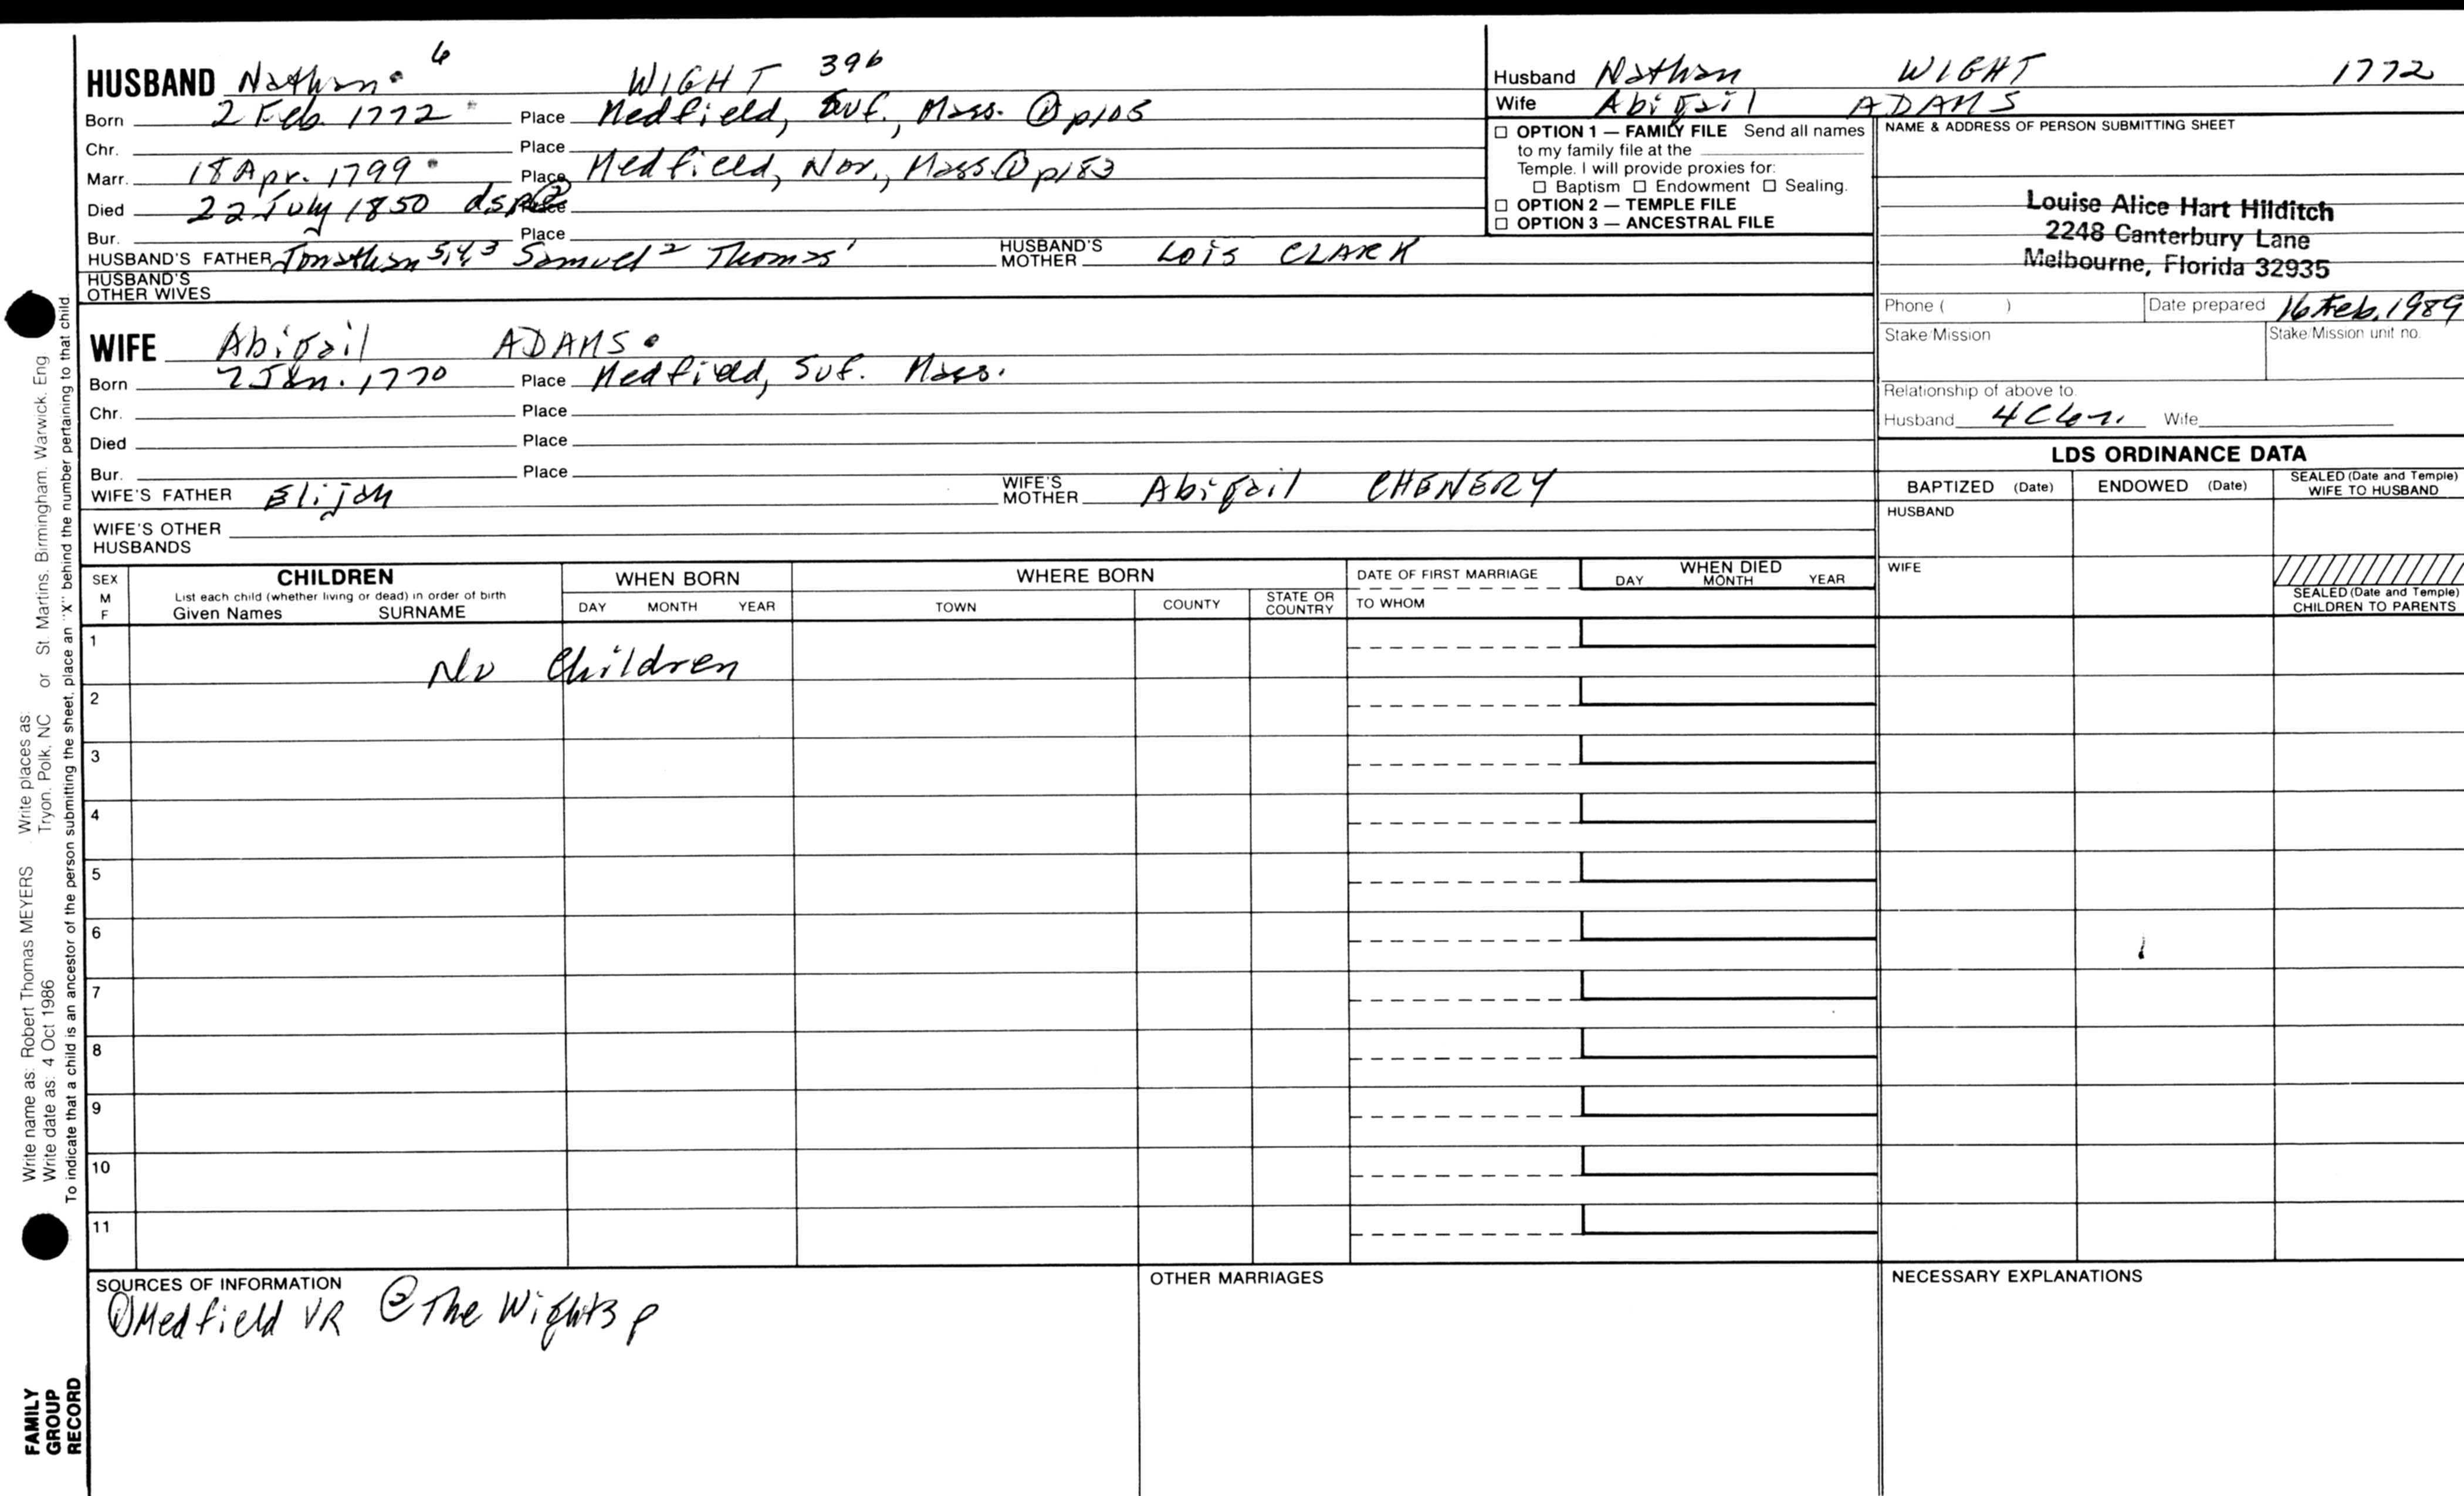 HUSBAND Nathan 6 WIGHT 396
Born 2 Feb. 1772 Place Medfield, Suf., Mass. ① p105
Chr. Place
Marr. 18 Apr. 1799 Place Medfield, Nor., Mass. ① p183
Died 22 July 1850 dsp② Place
Bur. Place
HUSBAND'S FATHER Jonathan 5,4,3 Samuel 2 Thomas 1 HUSBAND'S MOTHER Lois CLARK
HUSBAND'S OTHER WIVES
WIFE Abigail ADAMS
Born 7 Jan. 1770 Place Medfield, Suf. Mass.
Chr. Place
Died Place
Bur. Place
WIFE'S FATHER Elijah WIFE'S MOTHER Abigail CHENERY
WIFE'S OTHER HUSBANDS
Husband Nathan WIGHT 1772
Wife Abigail ADAMS
☐ OPTION 1 — FAMILY FILE Send all names
to my family file at the
Temple. I will provide proxies for:
☐ Baptism ☐ Endowment ☐ Sealing.
☐ OPTION 2 — TEMPLE FILE
☐ OPTION 3 — ANCESTRAL FILE
NAME & ADDRESS OF PERSON SUBMITTING SHEET
Louise Alice Hart Hilditch
2248 Canterbury Lane
Melbourne, Florida 32935
Phone ( ) Date prepared 16 Feb. 1989
Stake/Mission Stake/Mission unit no.
Relationship of above to
Husband 4C6r. Wife
LDS ORDINANCE DATA
BAPTIZED (Date) ENDOWED (Date) SEALED (Date and Temple) WIFE TO HUSBAND
HUSBAND
WIFE
SEALED (Date and Temple)
CHILDREN TO PARENTS
SEX M F
CHILDREN
List each child (whether living or dead) in order of birth
Given Names SURNAME
WHEN BORN
DAY MONTH YEAR
WHERE BORN
TOWN COUNTY STATE OR COUNTRY
DATE OF FIRST MARRIAGE
TO WHOM
WHEN DIED
DAY MONTH YEAR
1
No Children
2
3
4
5
6
7
8
9
10
11
SOURCES OF INFORMATION
①Medfield VR ②The Wights p
OTHER MARRIAGES
NECESSARY EXPLANATIONS
Write name as: Robert Thomas MEYERS Write places as: Tryon, Polk, NC or St. Martins, Birmingham, Warwick, Eng
Write date as: 4 Oct 1986
To indicate that a child is an ancestor of the person submitting the sheet, place an "X" behind the number pertaining to that child.
FAMILY
GROUP
RECORD